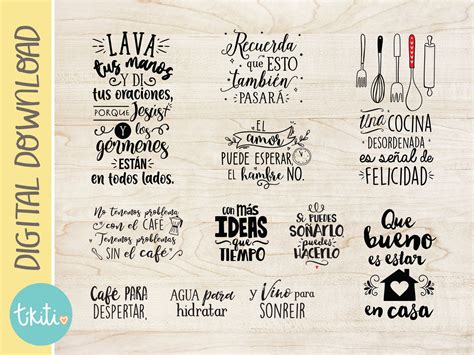 DIGITAL DOWNLOAD
tikiti
LAVA
tus manos
Y DI
tus oraciones,
PORQUE Jesús
Y los
gérmenes
ESTÁN
en todos lados.
Recuerda
que ESTO
también
PASARÁ.
EL
amor
PUEDE ESPERAR,
EL hambre NO.
una COCINA
DESORDENADA
es SEÑAL de
FELICIDAD
No tenemos problema
con el CAFÉ
Tenemos problemas
SIN el café
con MÁS
IDEAS
que
TIEMPO
SI PUEDES
SOÑARLO
puedes
HACERLO
Que
bueno
es estar
en casa
Café PARA
DESPERTAR,
AGUA para
hidratar
y Vino para
SONREIR